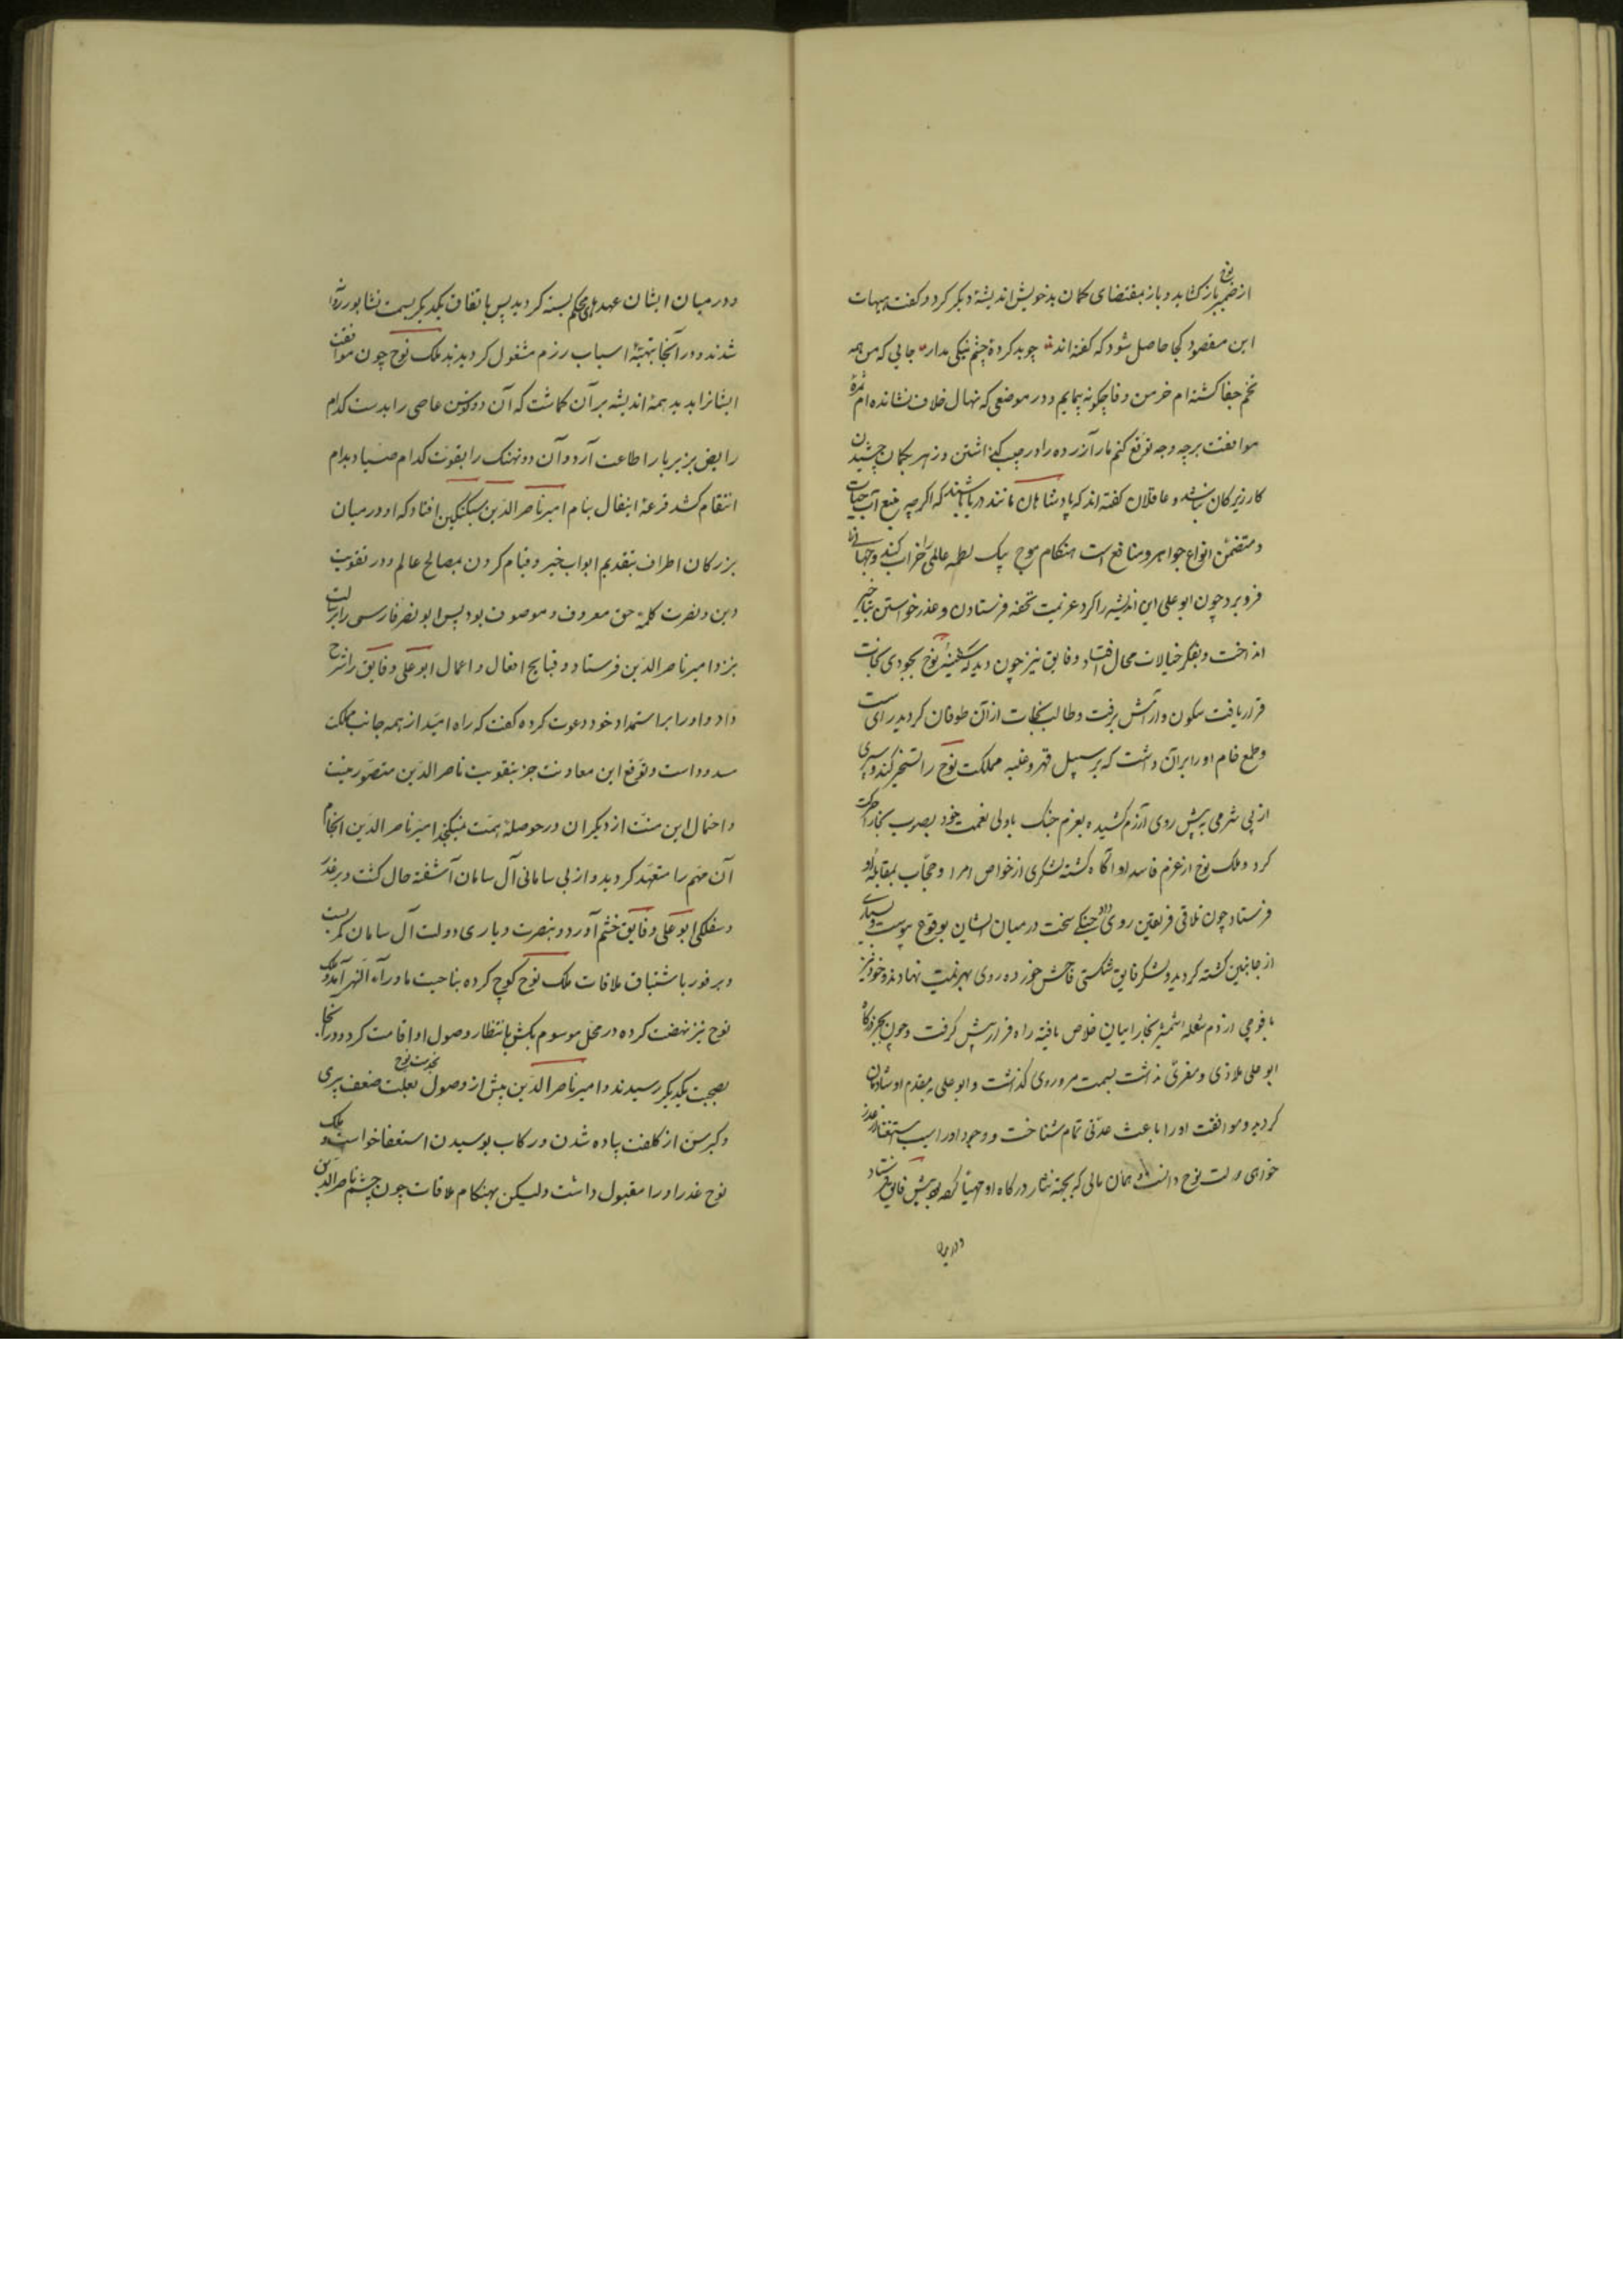 از ضمیر نوح باز کشاید و باز بمقتضای کمان بد خویش اندیشهٔ دیکر کرد و کفت هیهات
این مقصود کجا حاصل شود که کفته‌اند چو بد کردهٔ چشم نیکی مدار جایی که من همه
تخم جفا کشته‌ام خرمن وفا چکونه پیمایم و در موضعی که نهال خلاف نشانده‌ام ثمرهٔ
موافقت برچه وجه توقع کنم مار آزرده را در جیب کذاشتن و زهر بکمان چشیدن
کار زیرکان نباشد و عاقلان کفته‌اند که پادشاهان مانند دریا باشند که اکرچه منبع آب حیات
و متضمن انواع جواهر و منافع است هنکام موج بیک لطمه عالمی را خراب کند و جهانی را
فرو برد چون ابو علی این اندیشه را کرد عزیمت تحفه فرستادن و عذر خواستن بتاخیر
انداخت و بفکر خیالات محال افتاد و فایق نیز چون دید که سفینهٔ نوح بجودی نجات
قرار یافت سکون و ارامش برفت و طالب نجات از آن طوفان کردید رای سست
و طمع خام او را بر آن داشت که بر سبیل قهر و غلبه مملکت نوح را تسخیر کند و سپری
از بی شرمی به پیش روی آزرم کشیده بعزم جنک با ولی نعمت خود بصوب بخارا حرکت
کرد و ملک نوح از عزم فاسد او آکاه کشته لشکری از خواص امرا و حجاب بمقابله او
فرستاد چون تلاقی فریقین روی داد جنکی سخت در میان ایشان بوقوع پیوست و بسیاری
از جانبین کشته کردید و لشکر فایق شکستی فاحش خورده روی بهزیمت نهادند و خود نیز
با فوجی از دم شعله شمشیر بخاراییان خلاص یافته راه فرار پیش کرفت و چون بجز درکاه
ابو علی ملاذی و مفری نداشت بسمت مرو روی کذاشت و ابو علی به مقدم او شادمان
کردید و موافقت او را باعث عدتی تمام شناخت و وجود او را سبب استغنا از عذر
خواهی دولت نوح دانست و همان مالی که بجهة نثار درکاه او مهیا کرده بود پیش فایق فرستاد
و در میان
و در میان ایشان عهدهای محکم بسته کردید پس باتفاق یکدیکر بسمت نشابور روانه
شدند و در آنجا بتهیهٔ اسباب رزم مشغول کردیدند ملک نوح چون موافقت
ایشانرا بدید همهٔ اندیشه بر آن کماشت که آن دو توسن عاصی را بدست کدام
رایض بزیر بار اطاعت آرد و آن دو نهنک را بقوت کدام صیاد بدام
انتقام کشد قرعهٔ انفعال بنام امیر ناصر الدین سبکتکین افتاد که او در میان
بزرکان اطراف بتقدیم ابواب خیر و قیام کردن بمصالح عالم و در تقویت
دین و نصرت کلمهٔ حق معروف و موصوف بود پس ابو نصر فارسی را برسالت
نزد امیر ناصر الدین فرستاد و قبایح افعال و اعمال ابو علی و فایق را شرح
داد و او را بر استمداد خود دعوت کرده کفت که راه امید از همه جانب مملکت
مسدود است و توقع این معاونت جز بتقویت ناصر الدین متصور نیست
و احتمال این منت از دیکران در حوصلهٔ همت نمیکنجد امیر ناصر الدین انجام
آن مهم را متعهد کردید و از بی سامانی آل سامان آشفته حال کشت و بر غدر
و سفلکی ابو علی و فایق خشم آورد و بنصرت و یاری دولت آل سامان کمر بست
و بر فور باشتیاق ملاقات ملک نوح کوچ کرده بناحیت ماوراء النهر آمد و ملک
نوح نیز نهضت کرده در محل موسوم بکش بانتظار وصول او اقامت کرد و در آنجا
بصحبت یکدیکر رسیدند و امیر ناصر الدین پیش از وصول بخدمت نوح بعلت ضعف پیری
و کبر سن از کلفت پیاده شدن و رکاب بوسیدن استعفا خواست و ملک
نوح عذر او را مقبول داشت ولیکن بهنکام ملاقات چون چشم ناصر الدین